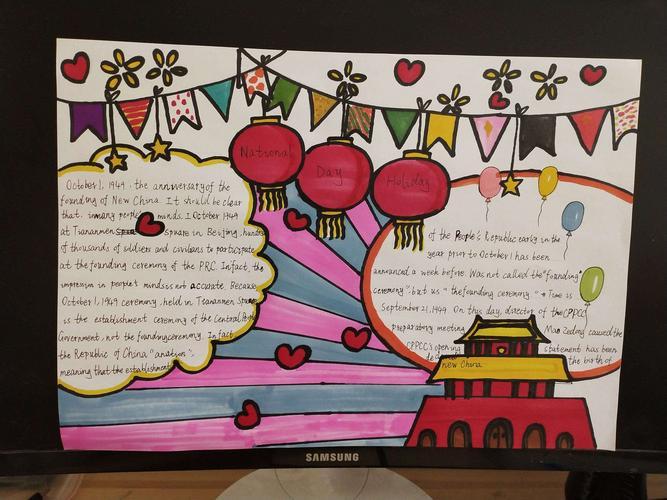 National
Day
Holiday
October 1, 1949, the anniversary of the
founding of New China. It should be clear
that, in many people minds. 1 October 1949
at Tiananmen square in Beijing, hundreds
of thousands of soldiers and civilians to participate
at the founding ceremony of the P.R.C. In fact, the
impression in people's minds is not accurate. Because
October 1, 1949 ceremony, held in Tiananmen Square
is the establishment ceremony of the Central People
Government, not the founding ceremony. In fact
the Republic of China "a nation",
meaning that the establishment
of the People's Republic early in the
year prior to October 1 has been
announced a week before. Was not called the "founding
ceremony", but us "the founding ceremony". Time is
September 21, 1949. On this day, director of the CPPCC
preparatory meeting Mao Zedong caused the
CPPCC's opening statement has been
the birth of
new China
SAMSUNG